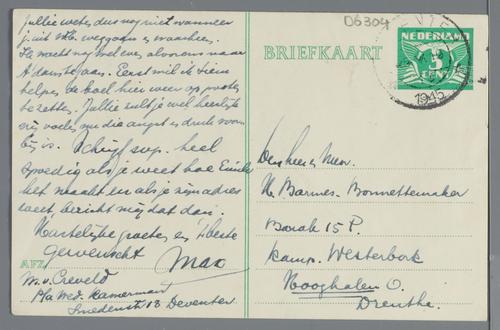 D6304
Jullie weten dus nog niet wanneer
j. uit Wb. weggaan en waarheen.
Ik wacht nog wel even alvorens naar
A'dam te gaan. Eerst wil ik Wiem
helpen de boel hier weer op poten
te zetten. Jullie zult je wel heerlijk
vrij voelen nu die angst en druk voor-
bij is. Schrijf svp. heel
spoedig als je weet hoe Emile
het maakt en als je zijn adres
weet, bericht mij dat dan.
Hartelijke groeten en 't beste
gewenscht Max
AFZ.
M. v. Creveld
P/a Wed. Kamerman
Smedenstr 13 Deventer
BRIEFKAART
NEDERLAND
5
CENT
1945
Den heer en Mevr.
M. Barmes-Bonnettemaker
Barak 15 P.
Kamp Westerbork
Hooghalen O.
Drenthe.